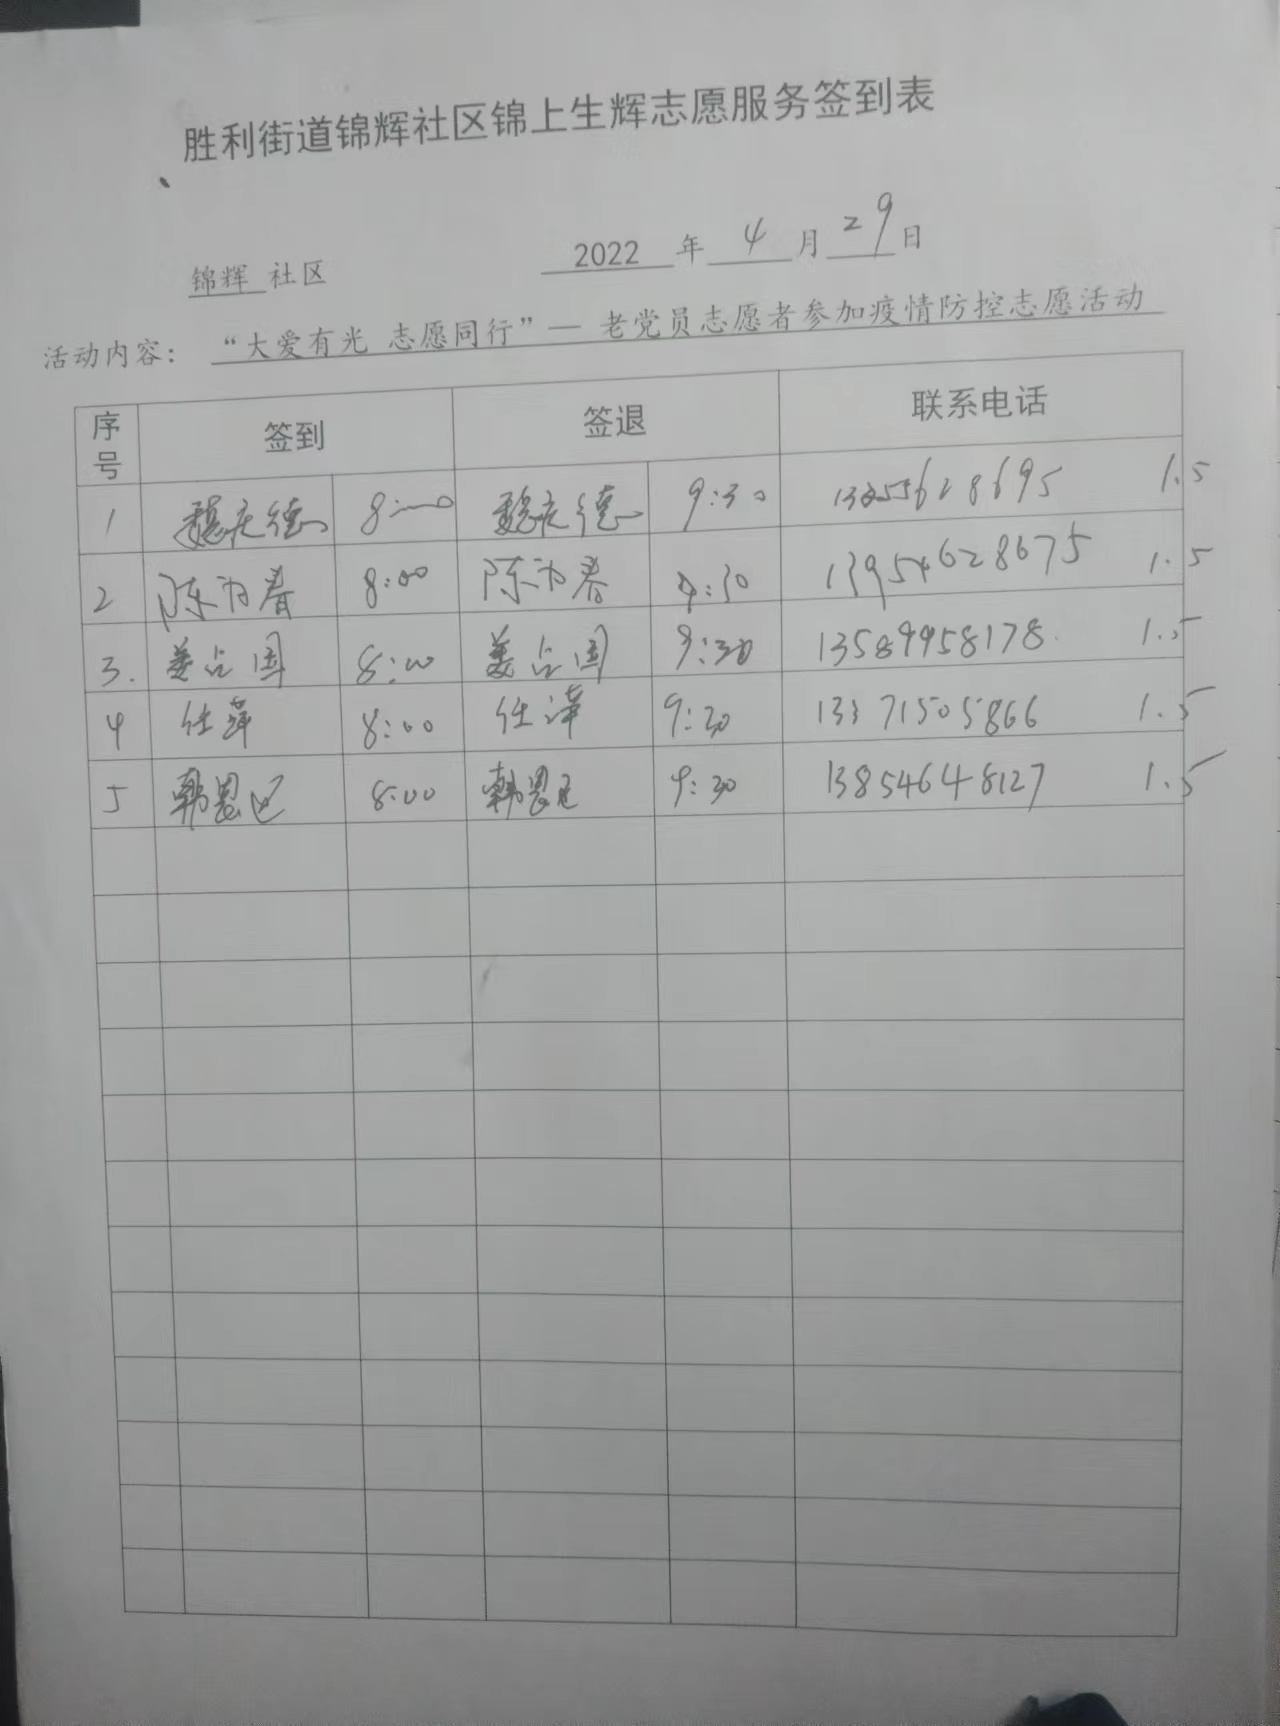 胜利街道锦辉社区锦上生辉志愿服务签到表
锦辉 社区 2022 年 4 月 29 日
活动内容： “大爱有光 志愿同行”— 老党员志愿者参加疫情防控志愿活动
序号 签到 签退 联系电话
1 魏庆德 8:00 魏庆德 9:30 1.5
2 陈为春 8:00 陈为春 9:30 13954628675 1.5
3. 姜占国 8:00 姜占国 9:30 13589958178 1.5
4 任萍 8:00 任萍 9:30 13371505866 1.5
5 8:00 9:30 13854648127 1.5